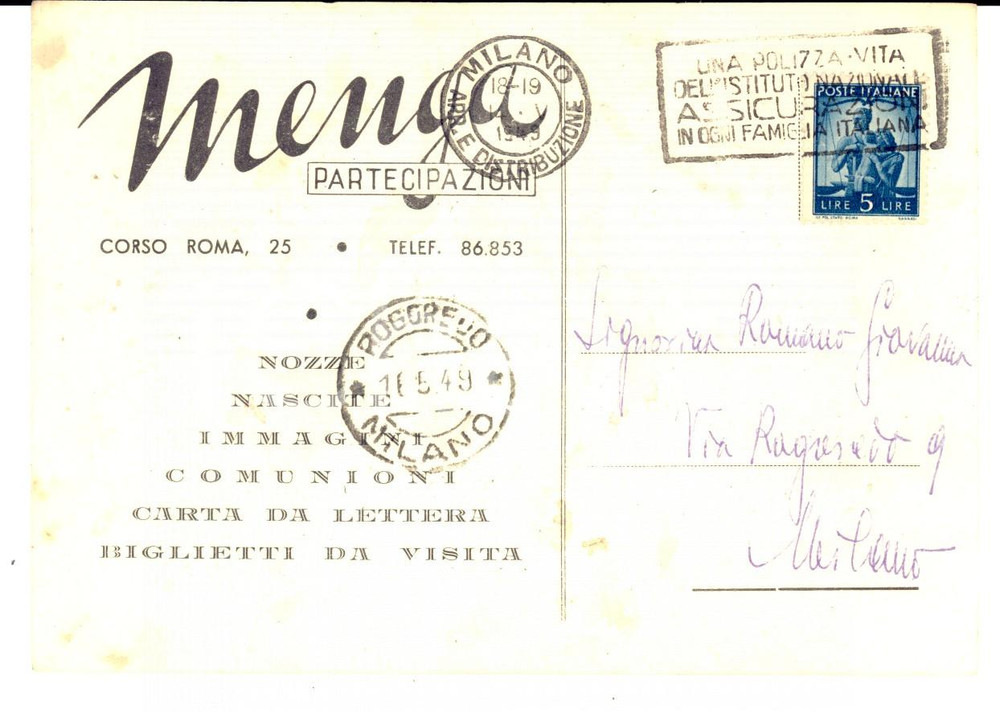 Menga
PARTECIPAZIONI
CORSO ROMA, 25 • TELEF. 86.853
NOZZE
NASCITE
IMMAGINI
COMUNIONI
CARTA DA LETTERA
BIGLIETTI DA VISITA
MILANO
18-19
V
1949
ARR. E DISTRIBUZIONE
ROGOREDO
16.5.49
MILANO
UNA POLIZZA-VITA
DELL'ISTITUTO NAZIONALE
ASSICURAZIONI
IN OGNI FAMIGLIA ITALIANA
POSTE ITALIANE
LIRE 5 LIRE
Signorina Romano Giovanna
Via Rogoredo 9
Milano